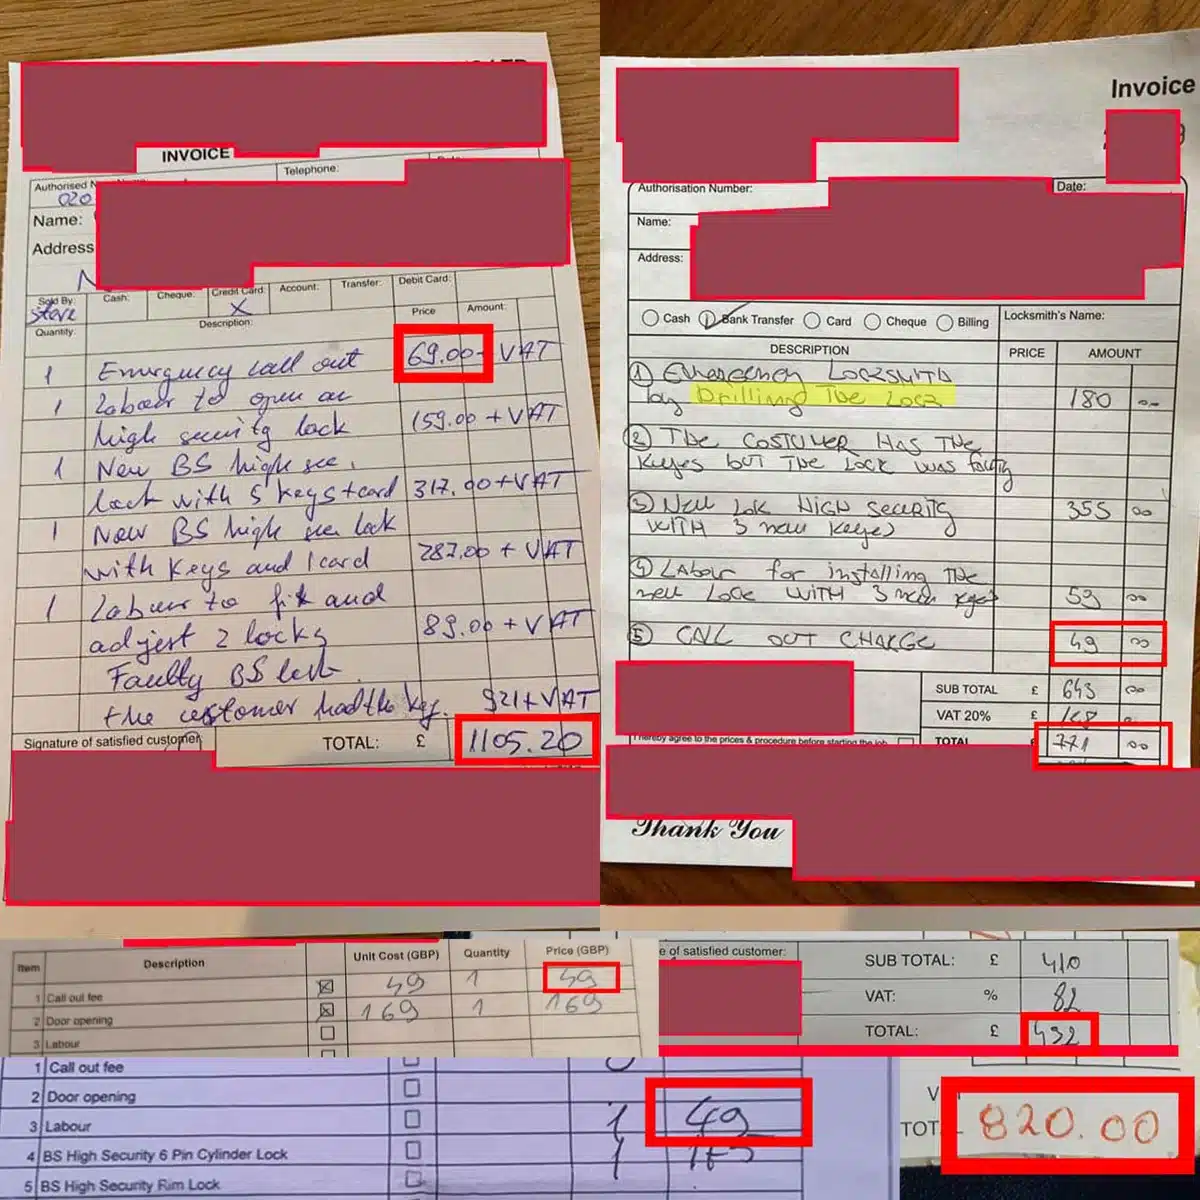 INVOICE
Telephone:
Authorised
020
Name:
Address
Sold By: Cash: Cheque: Credit Card: Account: Transfer: Debit Card:
Steve X
Quantity: Description: Price Amount:
1 Emergency call out 69.00 + VAT
1 Labour to open an
high security lock 159.00 + VAT
1 New BS high sec.
lock with 5 keys + card 317.00 + VAT
1 New BS high sec lock
with keys and 1 card 287.00 + VAT
1 Labour to fit and
adjest 2 locks 89.00 + VAT
Faulty BS lock
the customer had the key. 921 + VAT
Signature of satisfied customer: TOTAL: £ 1105.20
Invoice
Authorisation Number: Date:
Name:
Address:
Cash Bank Transfer Card Cheque Billing Locksmith's Name:
DESCRIPTION PRICE AMOUNT
① Emergency Locksmith
by Drilling The Lock 180 00
② The COSTUMER HAS THE
Keyes but THE LOCK WAS faulty
③ New Lok HIGH SECURITY 355 00
WITH 3 new Keyes
④ LABOUR for installing THE
new LOCK WITH 3 new Keyes 59 00
⑤ CALL OUT CHARGE 49 00
SUB TOTAL £ 643 00
VAT 20% £ 128
I hereby agree to the prices & procedure before starting the job
TOTAL £ 771 00
Thank You
Item Description Unit Cost (GBP) Quantity Price (GBP)
1 Call out fee 49 1 49
2 Door opening 169 1 169
3 Labour
e of satisfied customer: SUB TOTAL: £ 410
VAT: % 82
TOTAL: £ 492
1 Call out fee
2 Door opening
3 Labour 1 49
4 BS High Security 6 Pin Cylinder Lock 1
5 BS High Security Rim Lock
TOT 820.00